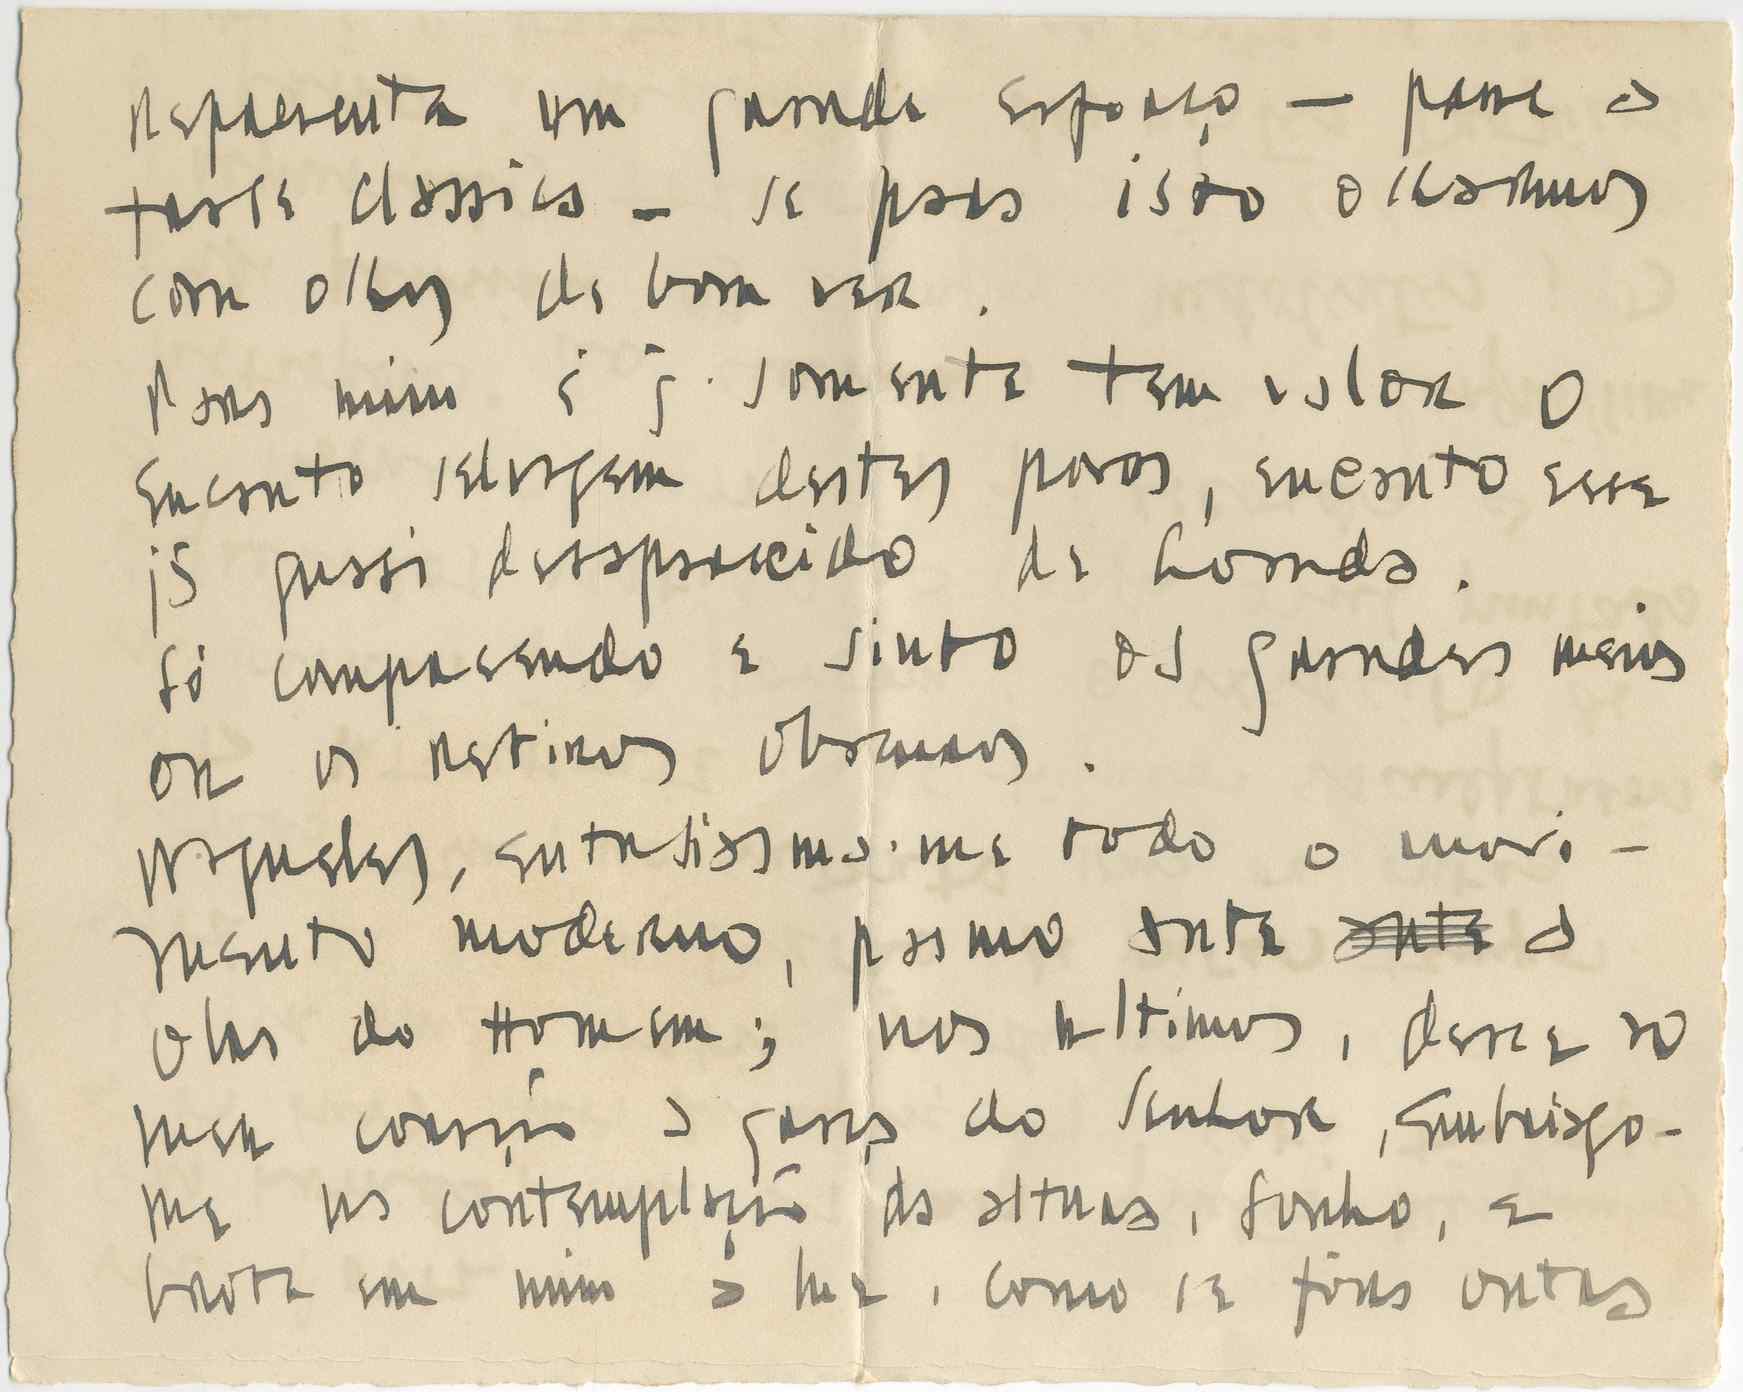 Representa um grande esforço — passe a
tarte classica — se para isto olharmos
com olhos de bom ver.
Para mim é q. somente tem valor o
encanto selvagem destes povos, encanto esse
já quasi desaparecido de Loanda.
Só compreendo e sinto os grandes meios
ou os retiros obscuros.
N'aqueles, entusiasma-me todo o movi-
mento moderno, pasmo ante ante a
obra do Homem; nos ultimos, desce ao
meu coração a graça do Senhor, embriago-
me na contemplação da altura, sonho, e
brota em mim a luz, como se fôra outra